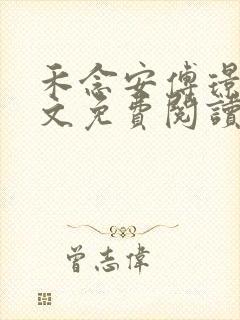 禾念安傅璟
文免費閱讀
曾志偉